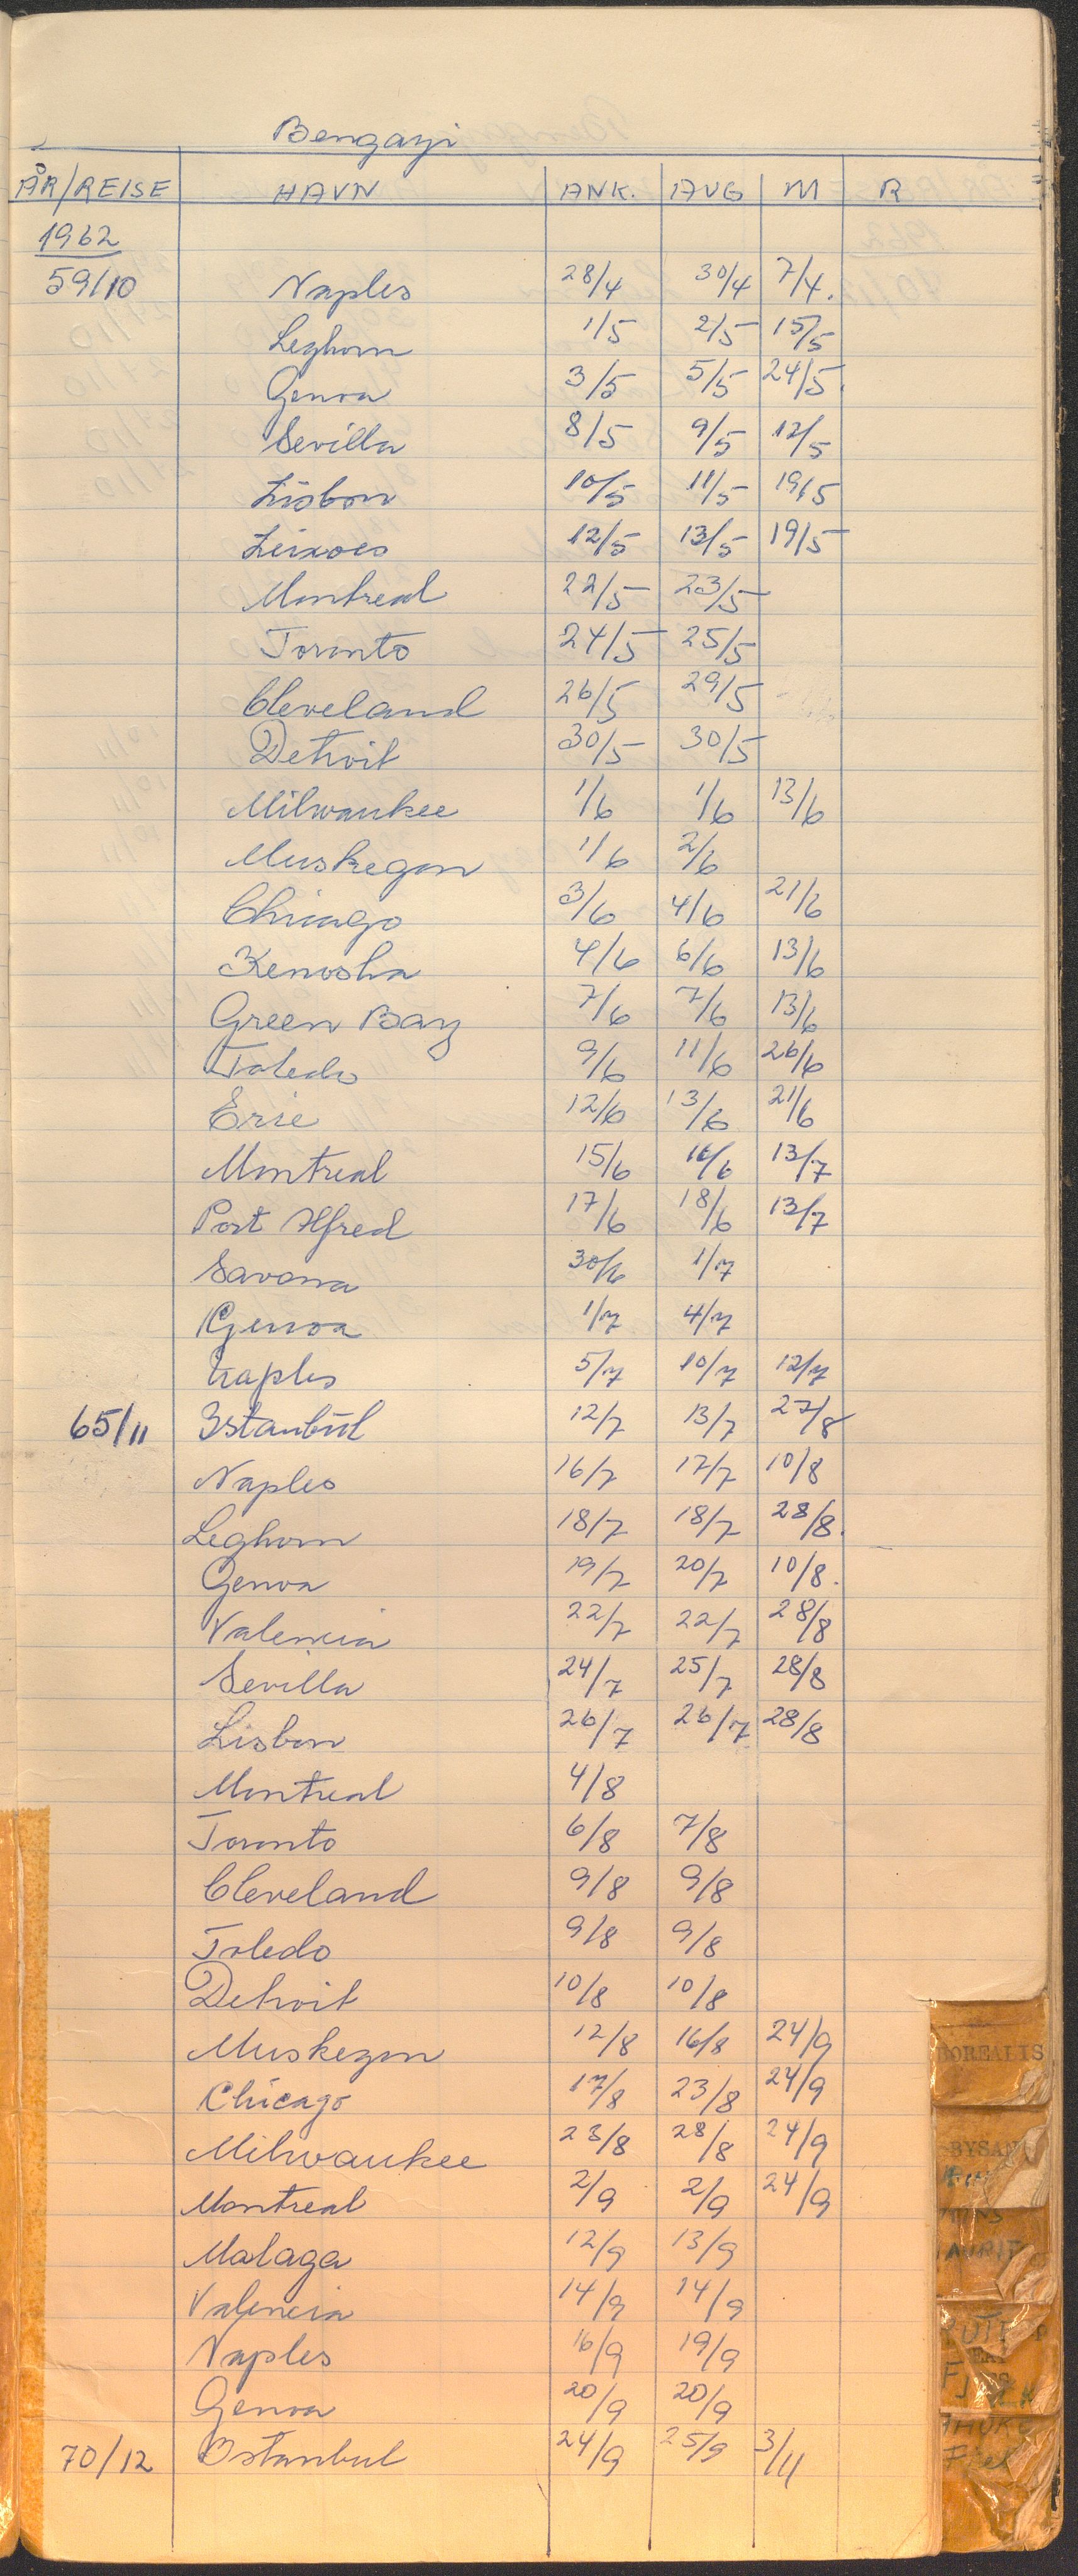 Bengazi
ÅR/REISE HAVN ANK. AVG M R
1962
59/10 Naples 28/4 30/4 7/4.
Leghorn 1/5 2/5 15/5
Genoa 3/5 5/5 24/5
Sevilla 8/5 9/5 12/5
Lisbon 10/5 11/5 19/5
Leixoes 12/5 13/5 19/5
Montreal 22/5 23/5
Toronto 24/5 25/5
Cleveland 26/5 29/5
Detroit 30/5 30/5
Milwaukee 1/6 1/6 13/6
Muskegon 1/6 2/6
Chicago 3/6 4/6 21/6
Kenosha 4/6 6/6 13/6
Green Bay 7/6 7/6 13/6
Toledo 9/6 11/6 26/6
Erie 12/6 13/6 21/6
Montreal 15/6 16/6 13/7
Port Alfred 17/6 18/6 13/7
Savona 30/6 1/7
Genoa 1/7 4/7
Naples 5/7 10/7 12/7
65/11 Istanbul 12/7 13/7 27/8
Naples 16/7 17/7 10/8
Leghorn 18/7 18/7 28/8.
Genoa 19/7 20/7 10/8.
Valencia 22/7 22/7 28/8
Sevilla 24/7 25/7 28/8
Lisbon 26/7 26/7 28/8
Montreal 4/8
Toronto 6/8 7/8
Cleveland 9/8 9/8
Toledo 9/8 9/8
Detroit 10/8 10/8
Muskegon 12/8 16/8 24/9
Chicago 17/8 23/8 24/9
Milwaukee 23/8 28/8 24/9
Montreal 2/9 2/9 24/9
Malaga 12/9 13/9
Valencia 14/9 14/9
Naples 16/9 19/9
Genoa 20/9 20/9
70/12 Istanbul 24/9 25/9 3/11
BOREALIS
BYSAN